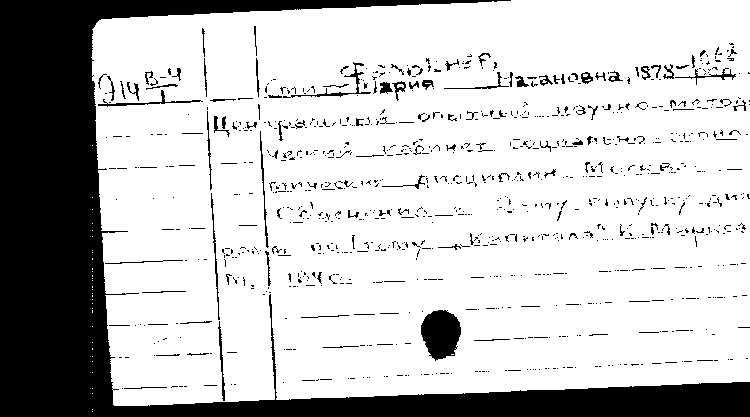 Фалькнер,
Э14 В-4/1 Смит Мария Натановна, 1878-1968
Центральный опытный научно-методи
ческий кабинет социально-эконо
мических дисциплин. Москва.
Объяснения к 2-му выпуску диа
грамм по I тому „Капитала" К. Маркса
М., 1940.